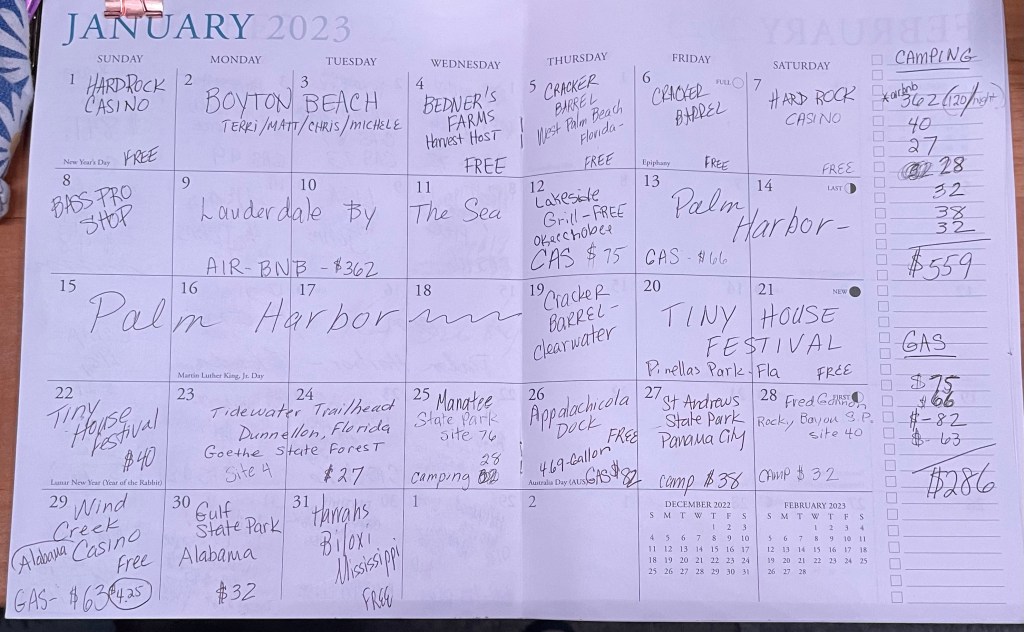 JANUARY 2023
SUNDAY MONDAY TUESDAY WEDNESDAY THURSDAY FRIDAY SATURDAY
1 HARDROCK
CASINO
New Year's Day FREE
2 3
BOYTON BEACH
TERRI/MATT/CHRIS/MICHELE
4
BEDNER'S
FARMS
Harvest Host
FREE
5 CRACKER
BARREL
West Palm Beach
Florida-
FREE
6 FULL
CRACKER
BARREL
Epiphany FREE
7
HARD ROCK
CASINO
FREE
8
BASS PRO
SHOP
9 10 11
Lauderdale By The Sea
AIR-BNB - $362
12
Lakeside
Grill-FREE
Okeechobee
GAS $75
13 14 LAST
Palm
Harbor-
GAS - $66
15 16 17 18
Palm Harbor
Martin Luther King, Jr. Day
19
Cracker
BARREL-
Clearwater
20 21 NEW
TINY HOUSE
FESTIVAL
Pinellas Park-Fla FREE
22
Tiny
House
Festival
$40
Lunar New Year (Year of the Rabbit)
23 24
Tidewater Trailhead
Dunnellon, Florida
Goethe State Forest
Site 4 $27
25 Manatee
State Park
Site 76
28
camping
26
Appalachicola
DOCK
FREE
Australia Day (AUS) GAS $82
27
St Andrews
State Park
Panama City
camp $38
28 FIRST
Fred Gannon
Rocky Bayou S.P.
site 40
CAMP $32
29 Wind
Creek
Alabama Casino
Free
GAS- $63 $4.25
30
Gulf
State Park
Alabama
$32
31 Harrahs
Biloxi
Mississippi
FREE
1
2
DECEMBER 2022
S M T W T F S
1 2 3
4 5 6 7 8 9 10
11 12 13 14 15 16 17
18 19 20 21 22 23 24
25 26 27 28 29 30 31
FEBRUARY 2023
S M T W T F S
1 2 3 4
5 6 7 8 9 10 11
12 13 14 15 16 17 18
19 20 21 22 23 24 25
26 27 28
CAMPING
*airbnb 362 (120/night)
40
27
28
32
38
32
$559
GAS
$75
$66
$-82
$-63
$286